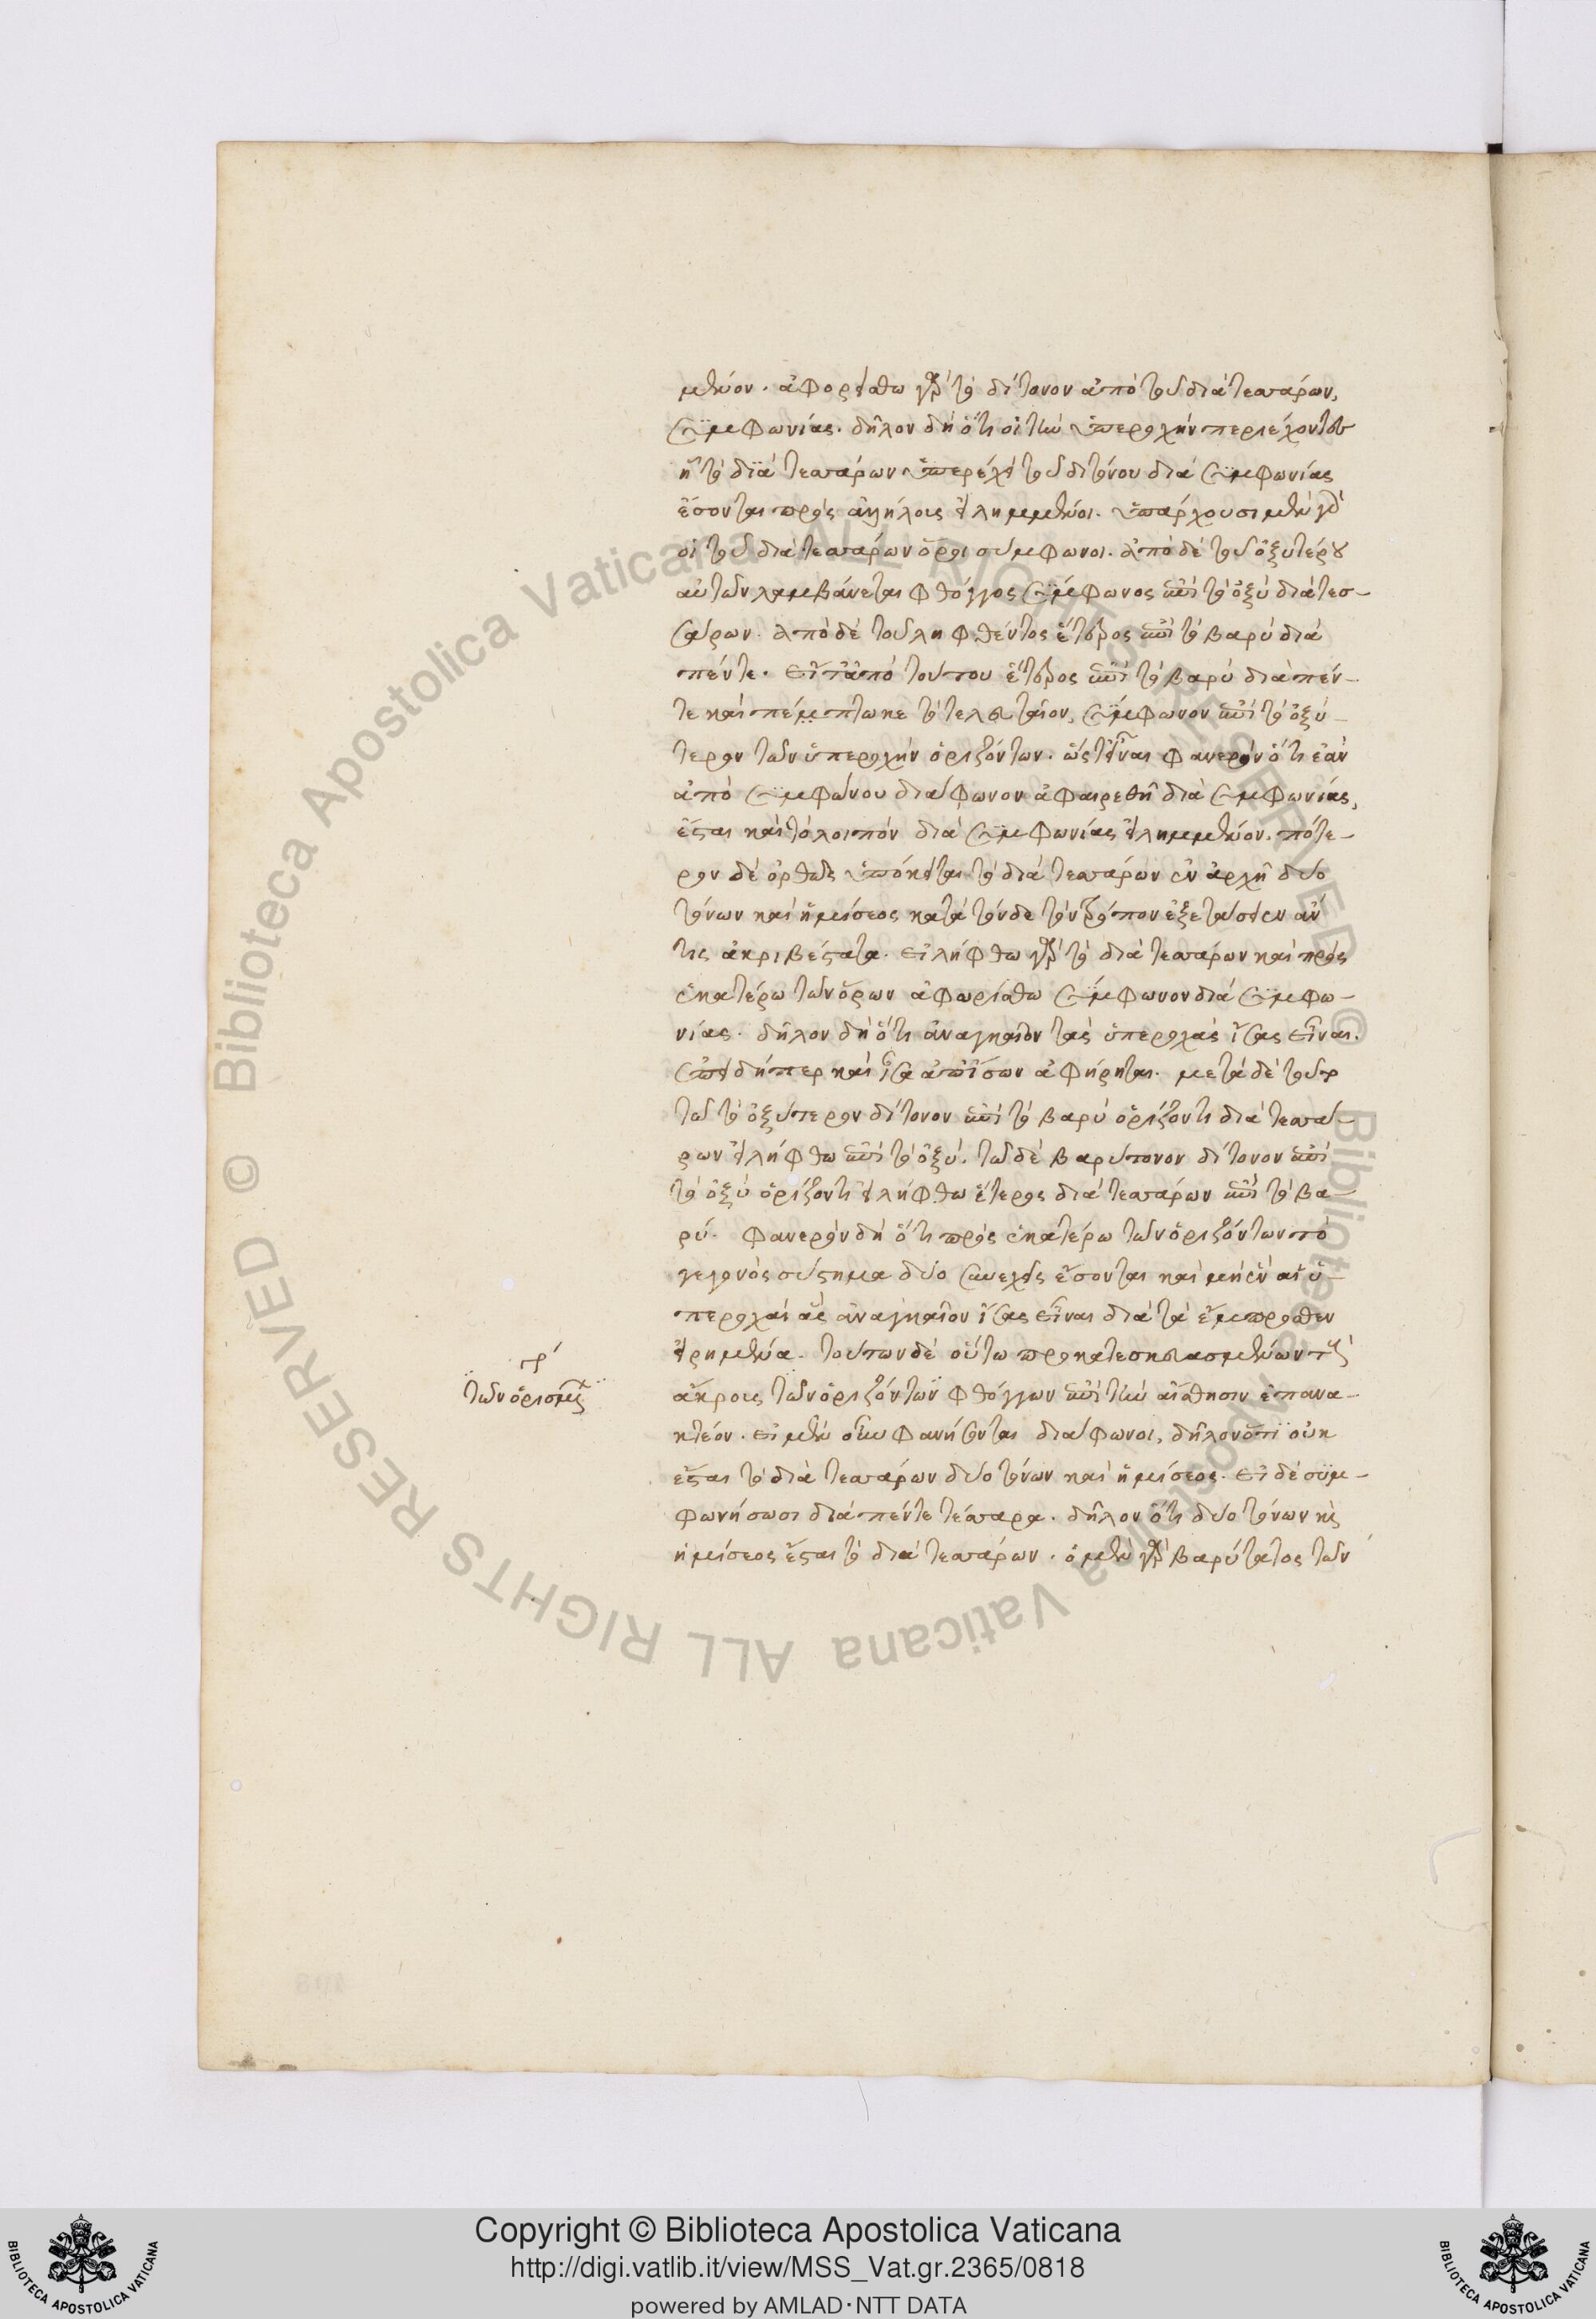 μένον. ἀφορείσθω γὰρ τὸ δίτονον ἀπὸ τοῦ διὰ τεσσάρων,
συμφωνίας. δῆλον δὴ ὅτι οἱ τὴν ὑπεροχὴν περιέχοντες
ᾗ τὸ διὰ τεσσάρων ὑπερέχει τοῦ διτόνου διὰ συμφωνίας
ἔσονται πρὸς ἀλλήλους εἰλημμένοι. ὑπάρχουσι μὲν γὰρ
οἱ τοῦ διὰ τεσσάρων ὅροι σύμφωνοι. ἀπὸ δὲ τοῦ ὀξυτέρου
αὐτῶν λαμβάνεται φθόγγος σύμφωνος ἐπὶ τὸ ὀξὺ διὰ τεσ-
σάρων. ἀπὸ δὲ τοῦ ληφθέντος ἕτερος ἐπὶ τὸ βαρὺ διὰ
πέντε. εἶτ' ἀπὸ τούτου ἕτερος ἐπὶ τὸ βαρὺ διὰ πέν-
τε καὶ πέμπτωκε τὸ τελευταῖον, σύμφωνον ἐπὶ τὸ ὀξύ-
τερον τῶν ὑπεροχὴν ὁριζόντων. ὥστ' εἶναι φανερὸν ὅτι ἐὰν
ἀπὸ συμφώνου διάφωνον ἀφαιρεθῇ διὰ συμφωνίας,
ἔσται καὶ τὸ λοιπὸν διὰ συμφωνίας εἰλημμένον. πότε-
ρον δὲ ὀρθῶς ὑπόκειται τὸ διὰ τεσσάρων ἐν ἀρχῇ δύο
τόνων καὶ ἡμίσεος κατὰ τόνδε τὸν τρόπον ἐξετάσειεν ἄν
τις ἀκριβέστατα. εἰλήφθω γὰρ τὸ διὰ τεσσάρων καὶ πρὸς
ἑκατέρω τῶν ὅρων ἀφωρίσθω σύμφωνον διὰ συμφω-
νίας. δῆλον δὴ ὅτι ἀναγκαῖον τὰς ὑπεροχὰς ἴσας εἶναι.
ἐπειδήπερ καὶ ἴσα ἀπ' ἴσων ἀφήρηται. μετὰ δὲ τοῦτο
τῷ τὸ ὀξύτερον δίτονον ἐπὶ τὸ βαρὺ ὁρίζοντι διὰ τεσσά-
ρων εἰλήφθω ἐπὶ τὸ ὀξύ. τῷ δὲ βαρύτονον δίτονον ἐπὶ
τὸ ὀξὺ ὁρίζοντι εἰλήφθω ἕτερος διὰ τεσσάρων ἐπὶ τὸ βα-
ρύ. φανερὸν δὴ ὅτι πρὸς ἑκατέρω τῶν ὁριζόντων τὸ
γεγονὸς σύστημα δύο συνεχεῖς ἔσονται καὶ μὴ ἓν αἱ ὑ-
περοχαὶ ἃς ἀναγκαῖον ἴσας εἶναι διὰ τὰ ἔμπροσθεν
εἰρημένα. τούτων δὲ οὕτω προκατεσκευασμένων τοὺς
ἄκρους τῶν ὁριζόντων φθόγγων ἐπὶ τὴν αἴσθησιν ἐπανα-
κτέον. εἰ μὲν οὖν φανήσονται διάφωνοι, δῆλον ὅτι οὐκ
ἔσται τὸ διὰ τεσσάρων δύο τόνων καὶ ἡμίσεος. εἰ δὲ συμ-
φωνήσωσι διὰ πέντε τέσσαρα. δῆλον ὅτι δύο τόνων καὶ
ἡμίσεος ἔσται τὸ διὰ τεσσάρων. ὁ μὲν γὰρ βαρύτατος τῶν
γρ
τῶν ὁρισμένων
Copyright © Biblioteca Apostolica Vaticana
http://digi.vatlib.it/view/MSS_Vat.gr.2365/0818
powered by AMLAD·NTT DATA